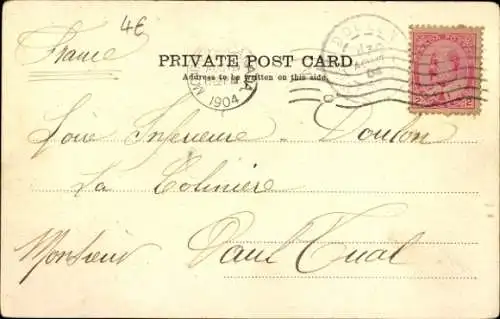 4€
France
PRIVATE POST CARD
Address to be written on this side.
CANADA
1904
04
Loire Inferieure - Doulon
La Colinière
Monsieur Paul Tual